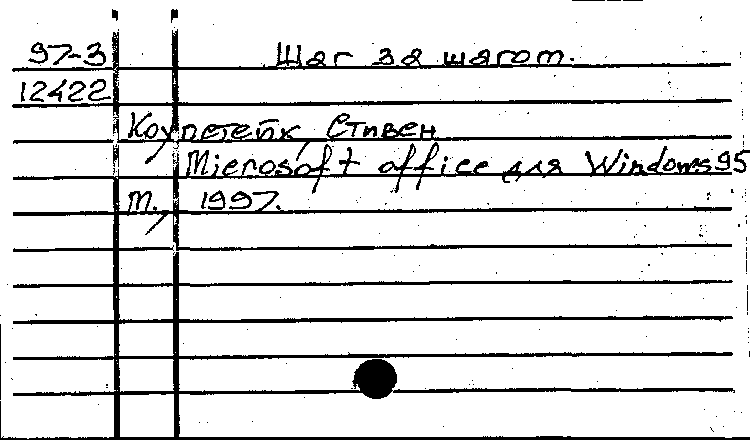 97-3 Шаг за шагом.
12422
Коупетейк, Стивен
Microsoft office для Windows 95
М., 1997.